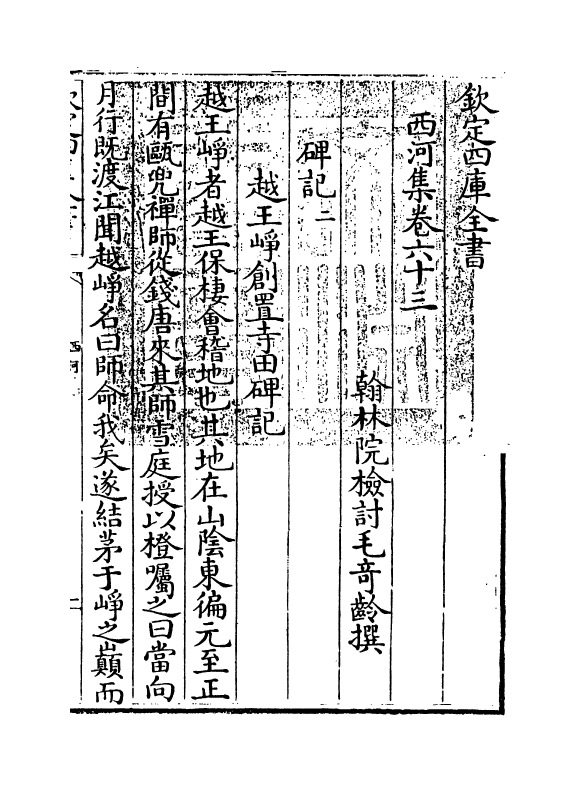 欽定四庫全書
西河集卷六十三
翰林院檢討毛奇齡撰
碑記二
越王崢創置寺田碑記
越王崢者越王保棲會稽地也其地在山陰東偏元至正
間有甌兜禪師從錢唐來其師雪庭授以橙囑之曰當向
月行既渡江聞越崢名曰師命我矣遂結茅于崢之巔而